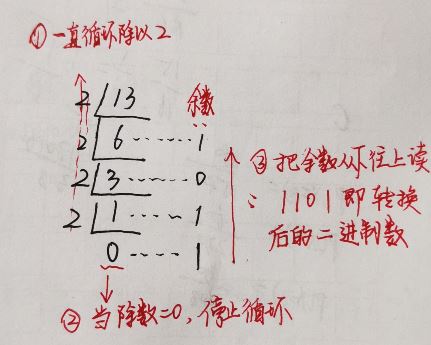 ① 一直循环除以2
2 13 余数
2 6 ...... 1
2 3 ...... 0
2 1 ...... 1
0 ...... 1
③ 把余数从下往上读
: 1101即转换
后的二进制数
② 当除数=0, 停止循环